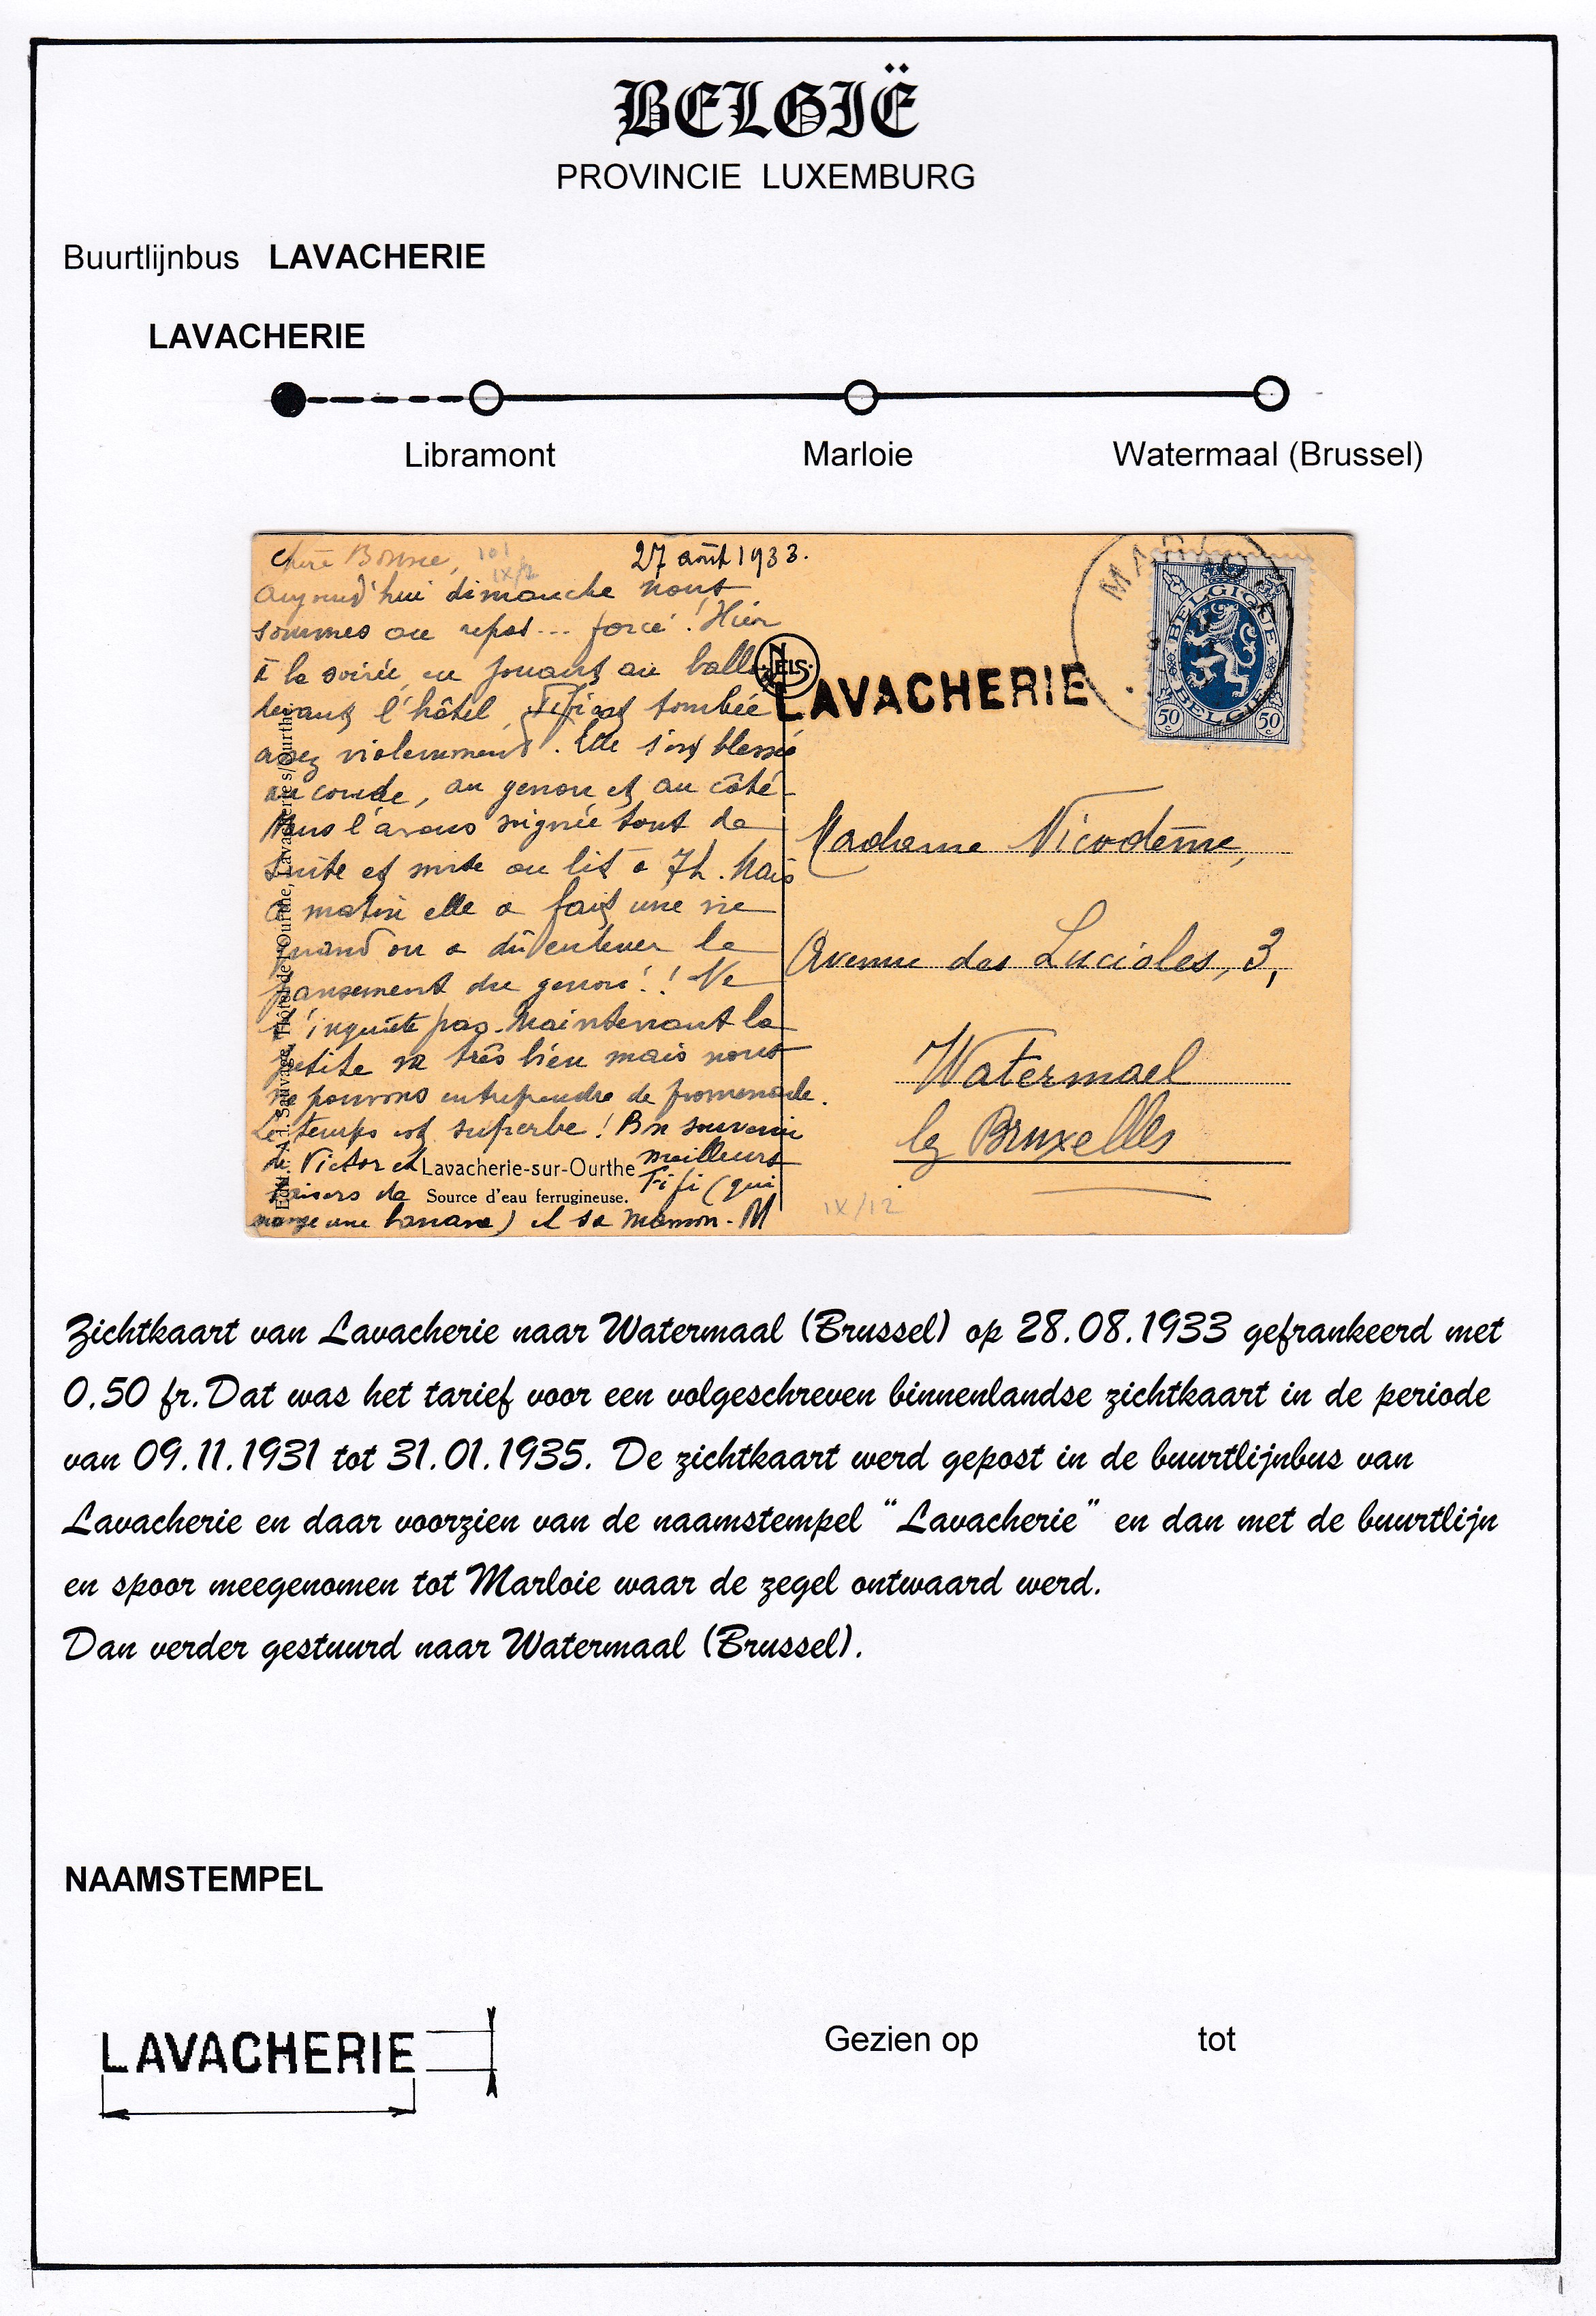 BELGIË
PROVINCIE LUXEMBURG
Buurtlijnbus LAVACHERIE
LAVACHERIE
Libramont Marloie Watermaal (Brussel)
Chère Bonne, 27 août 1933.
Aujourd'hui dimanche nous
sommes au repos... forcé! Hier
à la soirée, en jouant au ballon
devant l'hôtel, Fifi est tombée
assez violemment. Elle s'est blessée
au coude, au genou et au côté
Nous l'avons soignée tout de
suite et mise au lit à 7h. Mais
ce matin elle a fait une vie
quand on a dû enlever le
pansement du genou!! Ne
t'inquiète pas. Maintenant la
petite va très bien mais nous
ne pouvons entreprendre de promenade.
Le temps est superbe! Bon souvenir
de Victor et meilleurs
baisers de Fifi (qui
mange une banane) et sa Maman. M
Lavacherie-sur-Ourthe
Source d'eau ferrugineuse.
Sauvage, Hôtel de l'Ourthe, Lavacherie s/Ourthe
NELS
LAVACHERIE
BELGIQUE
BELGIE
50c 50c
Madame Nicodème,
Avenue des Lucioles, 3,
Watermael
lez Bruxelles
IX/12
Zichtkaart van Lavacherie naar Watermaal (Brussel) op 28.08.1933 gefrankeerd met
0.50 fr.Dat was het tarief voor een volgeschreven binnenlandse zichtkaart in de periode
van 09.11.1931 tot 31.01.1935. De zichtkaart werd gepost in de buurtlijnbus van
Lavacherie en daar voorzien van de naamstempel "Lavacherie" en dan met de buurtlijn
en spoor meegenomen tot Marloie waar de zegel ontwaard werd.
Dan verder gestuurd naar Watermaal (Brussel).
NAAMSTEMPEL
LAVACHERIE
Gezien op tot